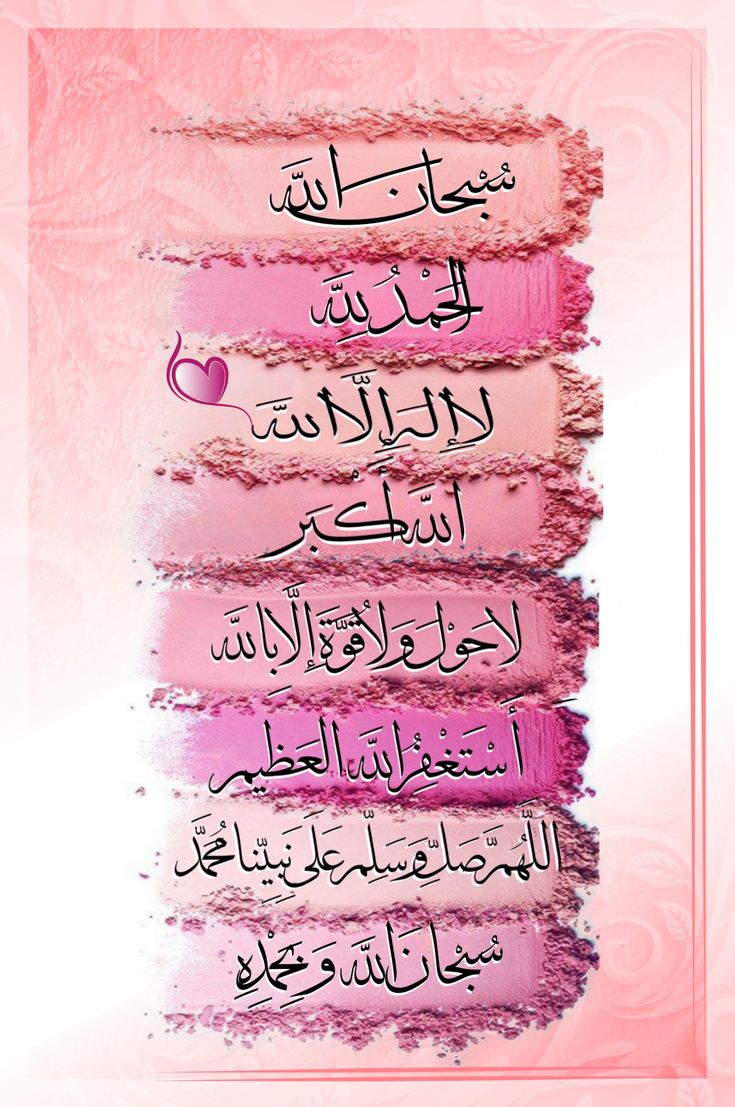 سُبْحَان اللَّه
الحَمْدُ لِلَّه
لا إِله إِلَّا اللَّه
اللَّه أَكْبَر
لا حَوْل وَلا قُوَّة إِلَّا بِاللَّه
أَسْتَغْفِرُ اللَّه العَظِيم
اللَّهُمَّ صَلِّ وَسَلِّم عَلَى نَبِيِّنَا مُحَمَّد
سُبْحَانَ اللَّه وَبِحَمْدِهِ